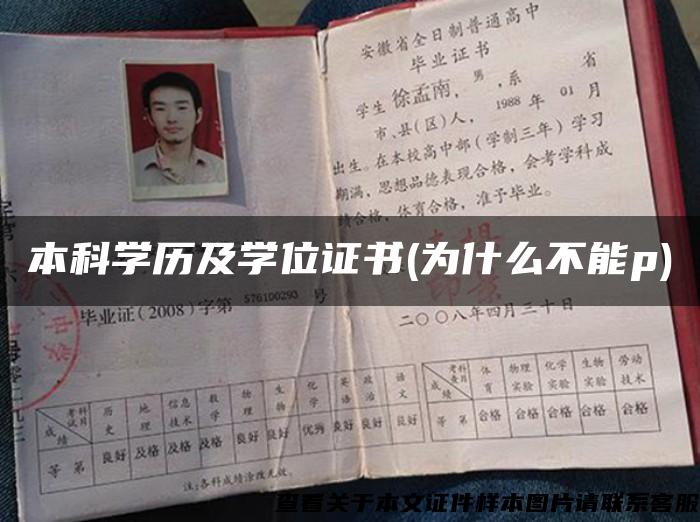 安徽省全日制普通高中
毕业证书
学生徐孟南，男，系 省
市、县(区)人，1988年01月
出生。在本校高中部（学制三年）学习
期满，思想品德表现合格，会考学科成
绩合格，体育合格，准予毕业。
本科学历及学位证书(为什么不能p)
毕业证(2008)字第576100293号
二〇〇八年四月三十日
考试科目 历史 地理 信息技术 数学 物理 生物 化学 英语 政治 语文
成绩
等第 良好 及格 及格 及格 良好 良好 优秀 良好 良好 良好
注:各科成绩涂改无效。
考查科目 体育 物理实验 化学实验 生物实验 劳动技术
成绩
等第 合格 合格 合格 合格 合格
查看关于本文证件样本图片请联系客服